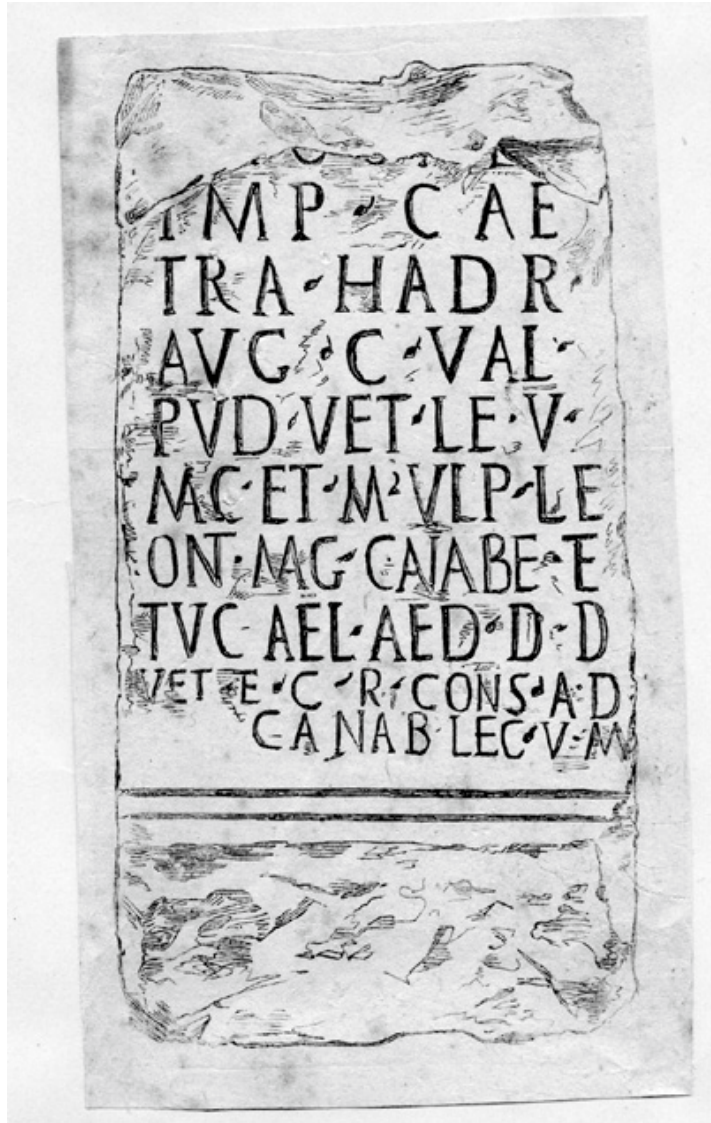 IMP · CAE
TRA · HADR
AVG · C · VAL ·
PVD · VET · LE · V ·
MC · ET · M · VLP · LE
ON · MAG · CANABE · E
TVC · AEL · AED · D · D
VET · E · C · R · CONS · A · D
CANAB LEG · V · M